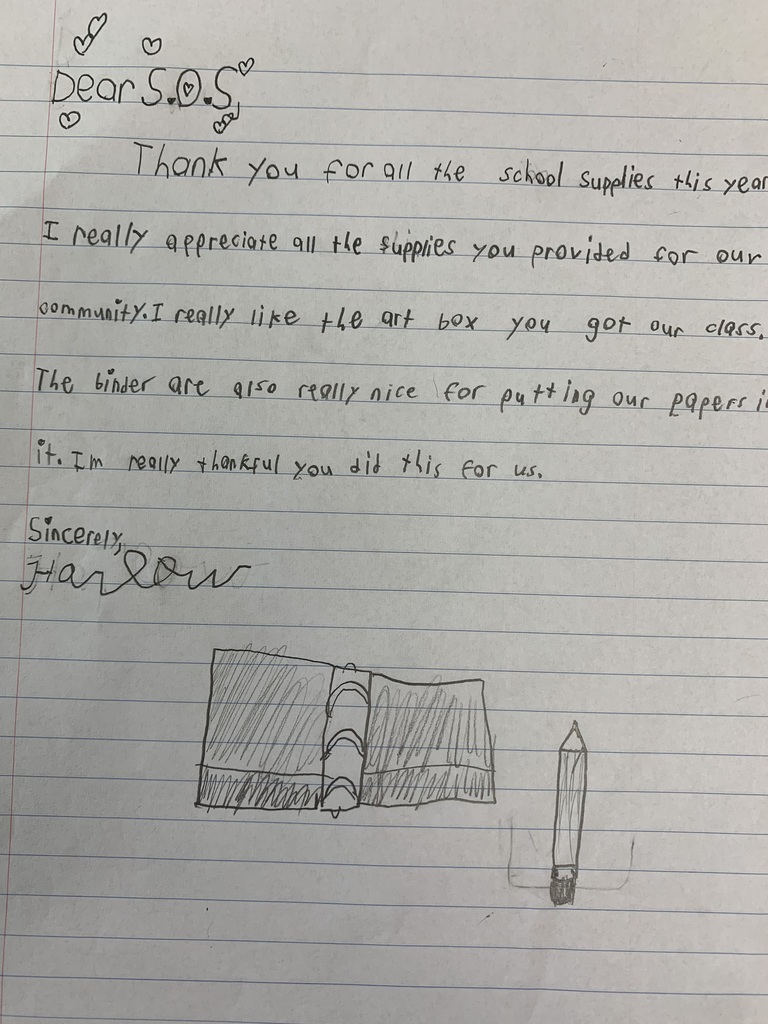 Dear S.O.S,
Thank you for all the school supplies this year
I really appreciate all the supplies you provided for our
community. I really like the art box you got our class.
The binder are also really nice for putting our papers i
it. Im really thankful you did this for us.
Sincerely,
Harlow